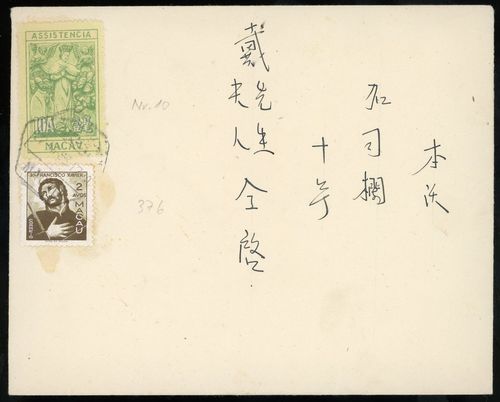 本沃
司欄
十号
戴先生夫人仝啓
ASSISTENCIA
MACAU
Nr. 10
376
FRANCISCO XAVIER
2
AVOS
MACAU